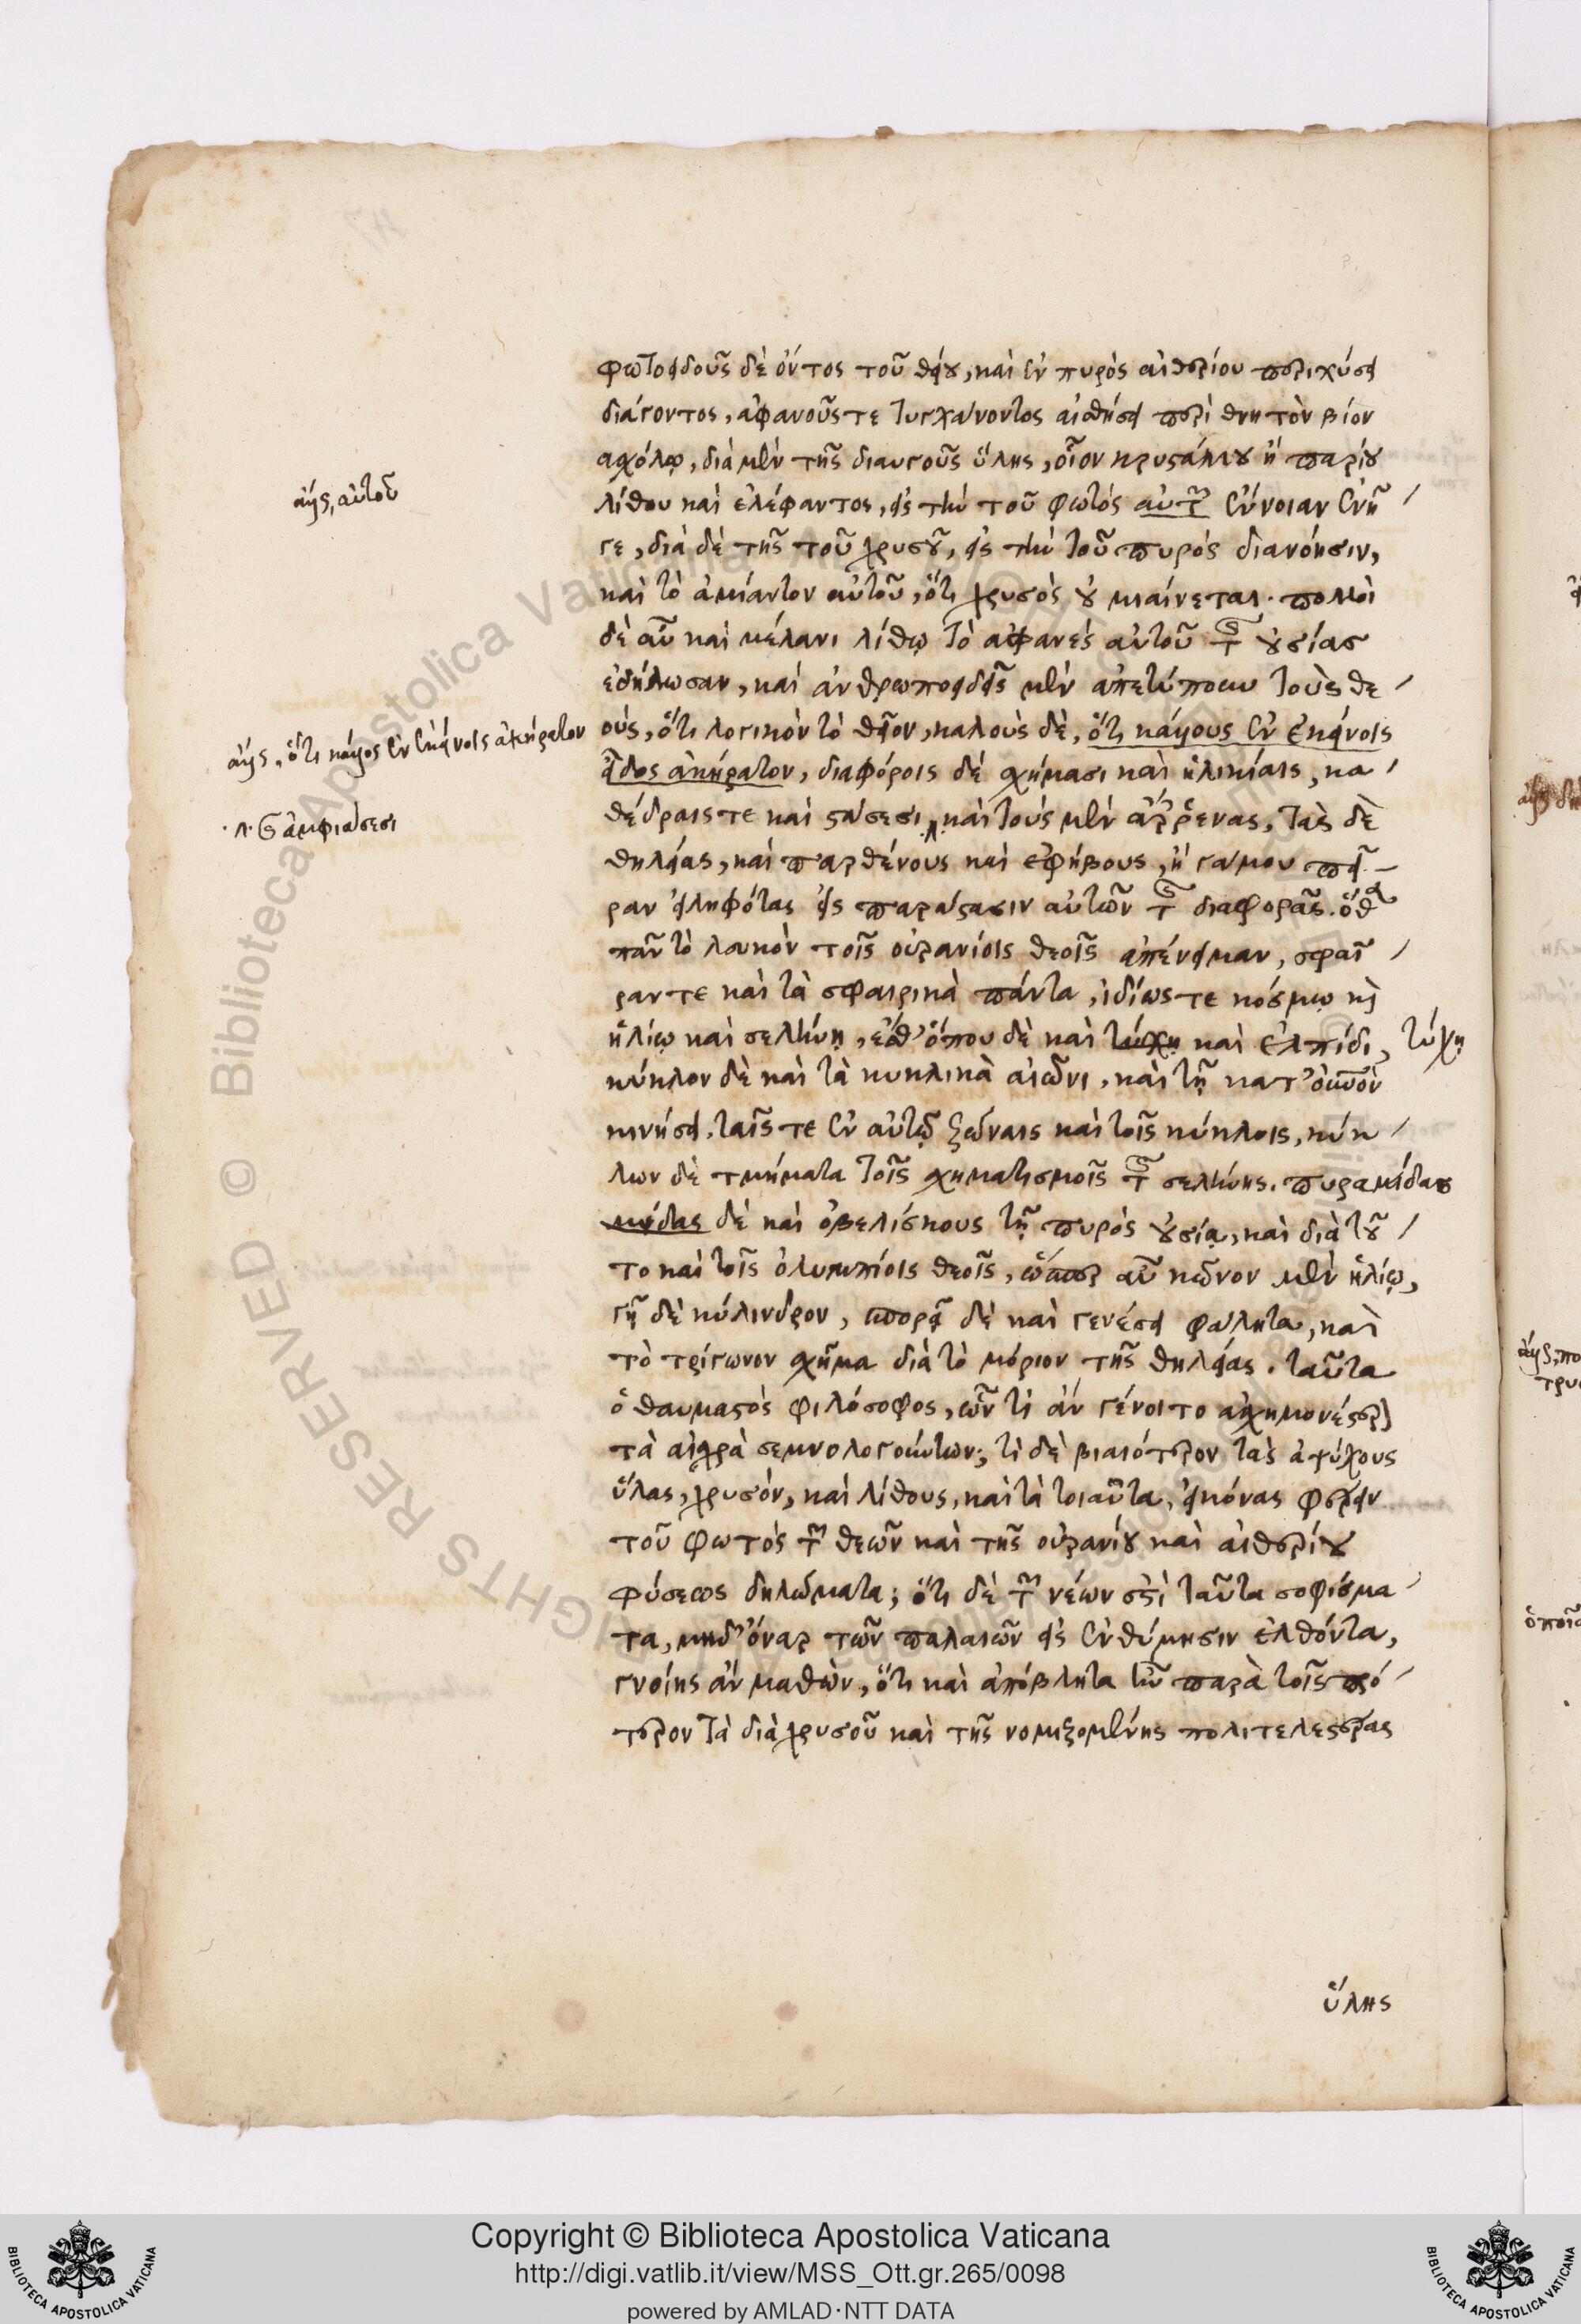 φωτοειδοῦς δὲ ὄντος τοῦ θείου, καὶ ἐν πυρὸς αἰθερίου περιχύσει
διάγοντος, ἀφανοῦς τε τυγχάνοντος αἰσθήσει περὶ θνητὸν βίον
ἀσχόλῳ, διὰ μὲν τῆς διαυγοῦς ὕλης, οἷον κρυστάλλου ἢ παρίου
λίθου καὶ ἐλέφαντος, εἰς τὴν τοῦ φωτὸς αὐτῶν ἔννοιαν ἐνῆ
γε, διὰ δὲ τῆς τοῦ χρυσοῦ, εἰς τὴν τοῦ πυρὸς διανόησιν,
καὶ τὸ ἀμίαντον αὐτοῦ, ὅτι χρυσὸς οὐ μιαίνεται. πολλοὶ
δὲ αὖ καὶ μέλανι λίθῳ τὸ ἀφανὲς αὐτοῦ τῆς οὐσίας
ἐδήλωσαν, καὶ ἀνθρωποειδεῖς μὲν ἀπετύπουν τοὺς θε
ούς, ὅτι λογικὸν τὸ θεῖον, καλοὺς δὲ, ὅτι κάλλους ἐν ἐκείνοις
εἶδος ἀκήρατον, διαφόροις δὲ σχήμασι καὶ ἡλικίαις, κα
θέδραις τε καὶ στάσεσι, καὶ τοὺς μὲν ἄρρενας, τὰς δὲ
θηλείας, καὶ παρθένους καὶ ἐφήβους, ἢ γάμου πεῖ
ραν εἰληφότας εἰς παράστασιν αὐτῶν τῆς διαφορᾶς. ὅθεν
πᾶν τὸ λευκὸν τοῖς οὐρανίοις θεοῖς ἀπένειμαν, σφαῖ
ραν τε καὶ τὰ σφαιρικὰ πάντα, ἰδίως τε κόσμῳ καὶ
ἡλίῳ καὶ σελήνῃ, ἔσθ' ὅπου δὲ καὶ τύχῃ καὶ ἐλπίδι, τύχῃ
κύκλον δὲ καὶ τὰ κυκλικὰ αἰῶνι, καὶ τῇ κατ' οὐρανὸν
κινήσει, ταῖς τε ἐν αὐτῷ ζώναις καὶ τοῖς κύκλοις, κύκ
λων δὲ τμήματα τοῖς σχηματισμοῖς τῆς σελήνης. πυραμίδας
μίδας δὲ καὶ ὀβελίσκους τῇ πυρὸς οὐσίᾳ, καὶ διὰ τοῦ
το καὶ τοῖς ὀλυμπίοις θεοῖς, ὥσπερ αὖ κῶνον μὲν ἡλίῳ,
γῇ δὲ κύλινδρον, σπορᾷ δὲ καὶ γενέσει φάλητα, καὶ
τὸ τρίγωνον σχῆμα διὰ τὸ μόριον τῆς θηλείας. ταῦτα
ὁ θαυμαστὸς φιλόσοφος, ὧν τί ἂν γένοιτο ἀσχημονέστερον
τὰ αἰσχρὰ σεμνολογούντων; τί δὲ βιαιότερον τὰς ἀψύχους
ὕλας, χρυσόν, καὶ λίθους, καὶ τὰ τοιαῦτα, εἰκόνας φέρειν
τοῦ φωτὸς τῶν θεῶν καὶ τῆς οὐρανίου καὶ αἰθερίου
φύσεως δηλώματα; ὅτι δὲ τῶν νέων ἐστὶ ταῦτα σοφίσμα
τα, μηδ' ὄναρ τῶν παλαιῶν εἰς ἐνθύμησιν ἐλθόντα,
γνοίης ἂν μαθών, ὅτι καὶ ἀπόβλητα ἦν παρὰ τοῖς πρό
τερον τὰ διὰ χρυσοῦ καὶ τῆς νομιζομένης πολιτελεστέρας
ὕλης
ἄλλως, αὐτοῦ
ἄλλως, ὅτι κάλλος ἐν ἐκείνοις ἀκήρατον
καὶ ἀμφιάσεσι